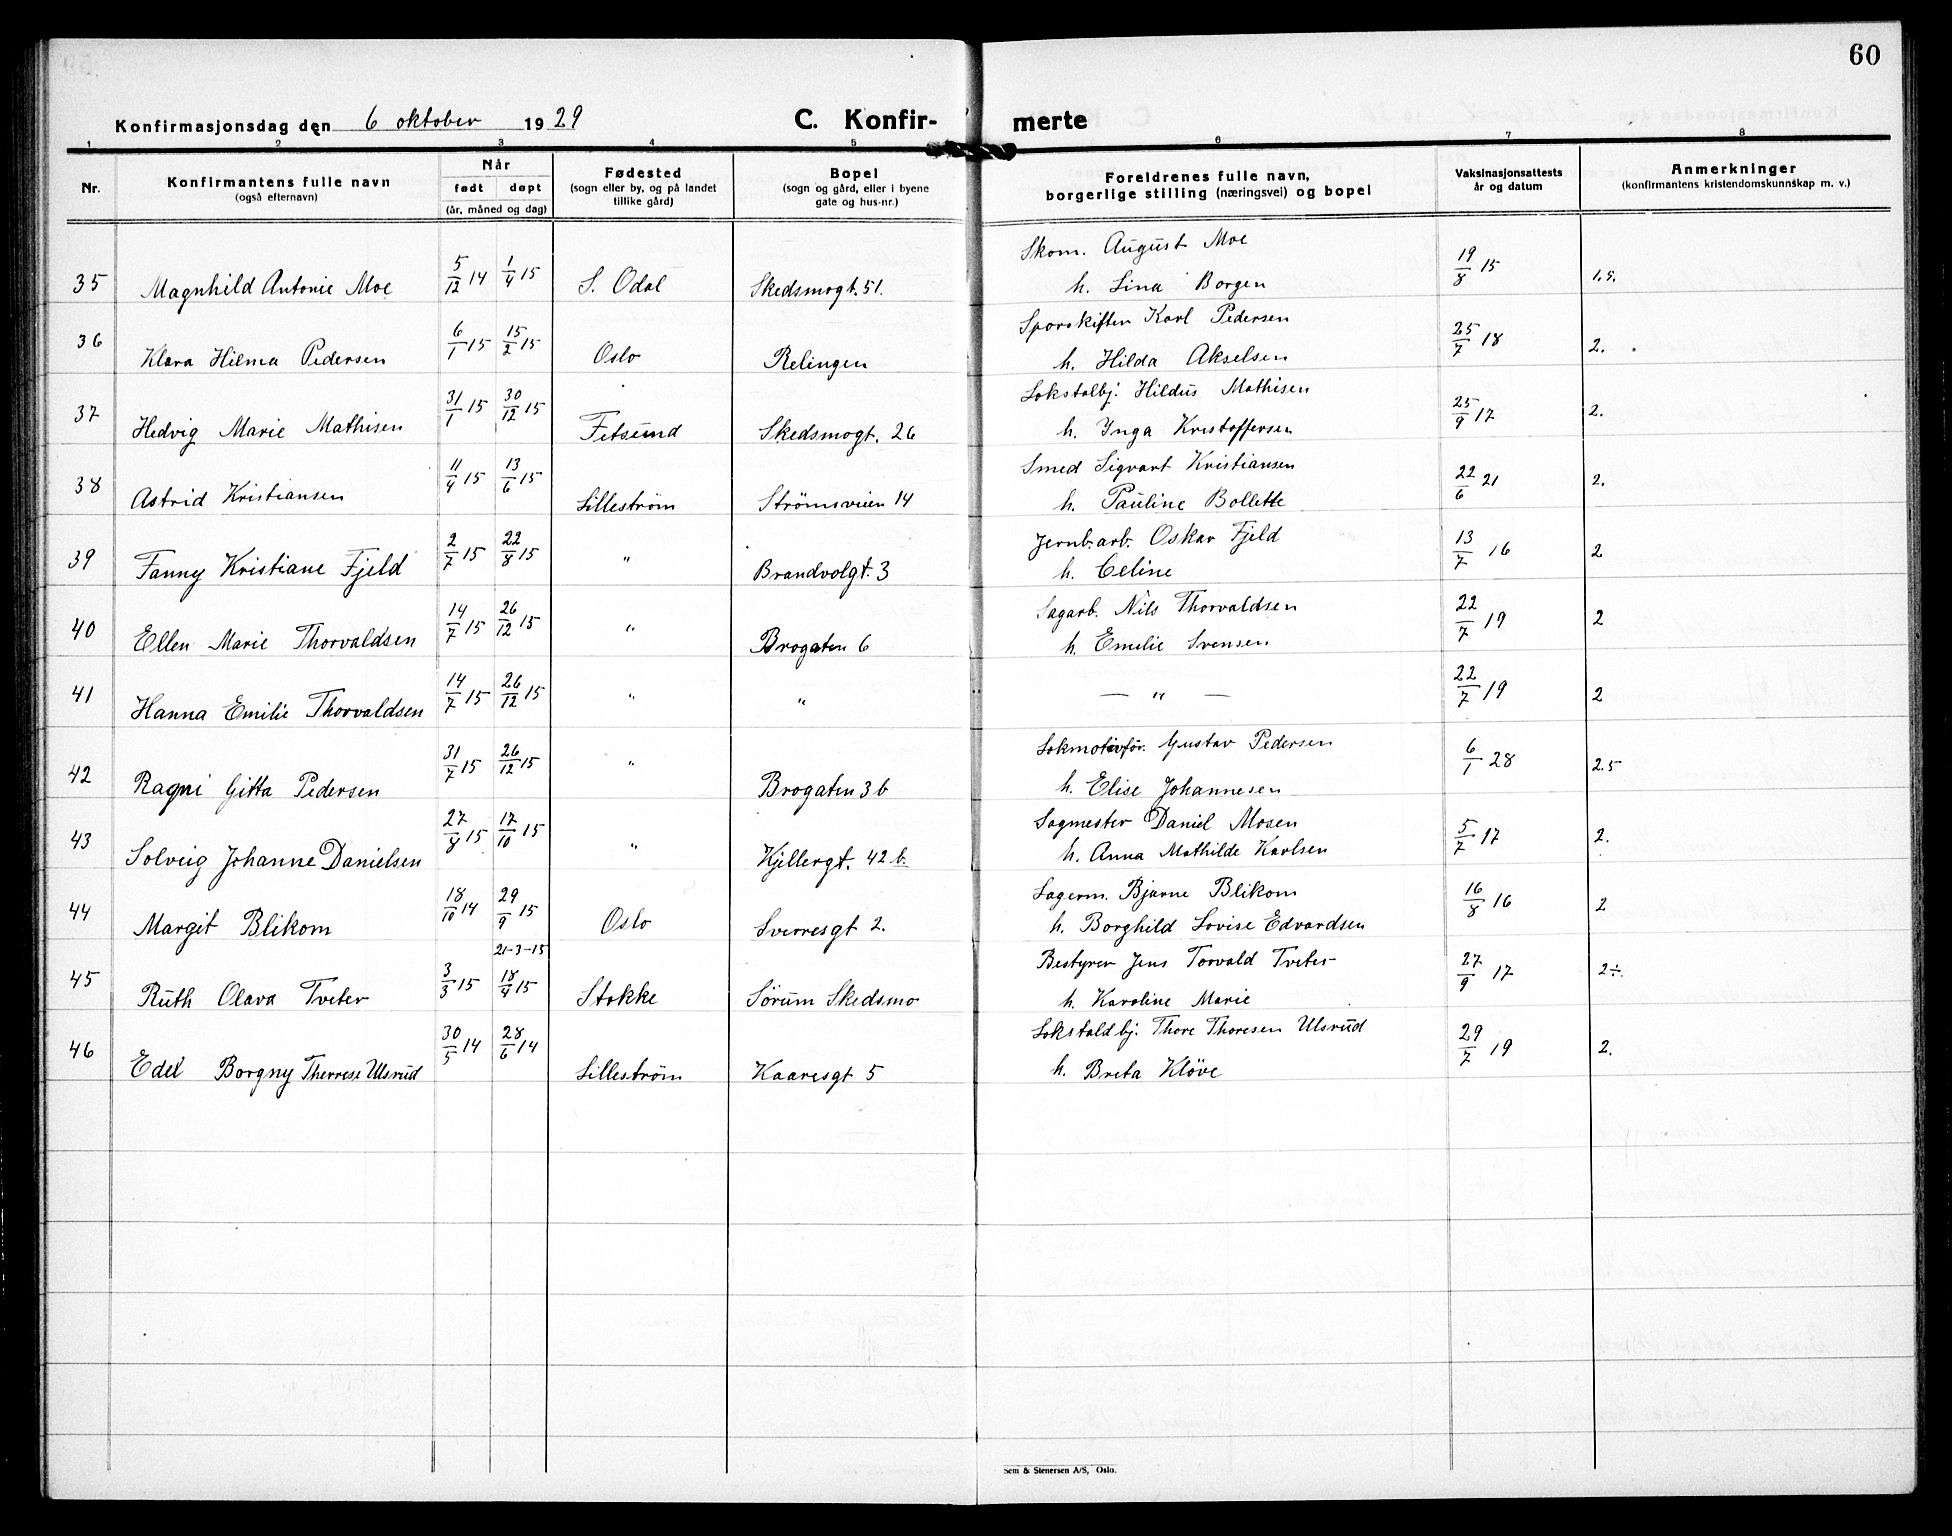 60
Konfirmasjonsdag den 6 oktober 1929 C. Konfir- merte
1 2 3 4 5 6 7 8
Nr. Konfirmantens fulle navn (også efternavn) Når født døpt (år, måned og dag) Fødested (sogn eller by, og på landet tillike gård) Bopel (sogn og gård, eller i byene gate og hus-nr.) Foreldrenes fulle navn, borgerlige stilling (næringsvei) og bopel Vaksinasjonsattests år og datum Anmerkninger (konfirmantens kristendomskunnskap m. v.)
35 Magnhild Antonie Moe 5/12 14 1/4 15 S. Odal Skedsmogt. 51. Skom. August Moe 19/8 15 1.5.
h. Lina Borgen
36 Klara Hilma Pedersen 6/1 15 15/2 15 Oslo Relingen Sporskiften Karl Pedersen 25/7 18 2.
h. Hilda Akselsen
37 Hedvig Marie Mathisen 31/1 15 30/12 15 Fetsund Skedsmogt. 26 Lokstalbj. Hildus Mathisen 25/9 17 2.
h. Inga Kristoffersen
38 Astrid Kristiansen 11/4 15 13/6 15 Lilleström Strømsveien 14 Smed Sigvart Kristiansen 22/6 21 2.
h. Pauline Bollette
39 Fanny Kristiane Fjeld 2/7 15 22/8 15 " Brandvolgt. 3 Jernb.arb. Oskar Fjeld 13/7 16 2
h. Celine
40 Ellen Marie Thorvaldsen 14/7 15 26/12 15 " Brogaten 6 Sagarb. Nils Thorvaldsen 22/7 19 2
h. Emilie Svensen
41 Hanna Emilie Thorvaldsen 14/7 15 26/12 15 " " — " — 22/7 19 2
42 Ragni Gitta Pedersen 31/7 15 26/12 15 " Brogaten 3 b Lokmotivfør. Gustav Pedersen 6/1 28 2.5
h. Elise Johannesen
43 Solveig Johanne Danielsen 27/8 15 17/10 15 " Kjellergt. 42 b. Sagmester Daniel Mosen 5/7 17 2.
h. Anna Mathilde Karlsen
44 Margit Blikom 18/10 14 29/9 15 Oslo Sverresgt 2. Lagerm. Bjarne Blikom 16/8 16 2
h. Borghild Lovise Edvardsen
21-3-15
45 Ruth Olava Tveter 3/3 15 18/4 15 Stokke Sørum Skedsmo Bestyrer Jens Torvald Tveter 27/9 17 2÷.
h. Karoline Marie
46 Edel Borgny Therrese Ulsrud 30/5 14 28/6 14 Lilleström Kaaresgt 5 Lokstaldbj. Thore Thoresen Ulsrud 29/7 19 2.
h. Breta Kløve
Sem & Stenersen A/S, Oslo.